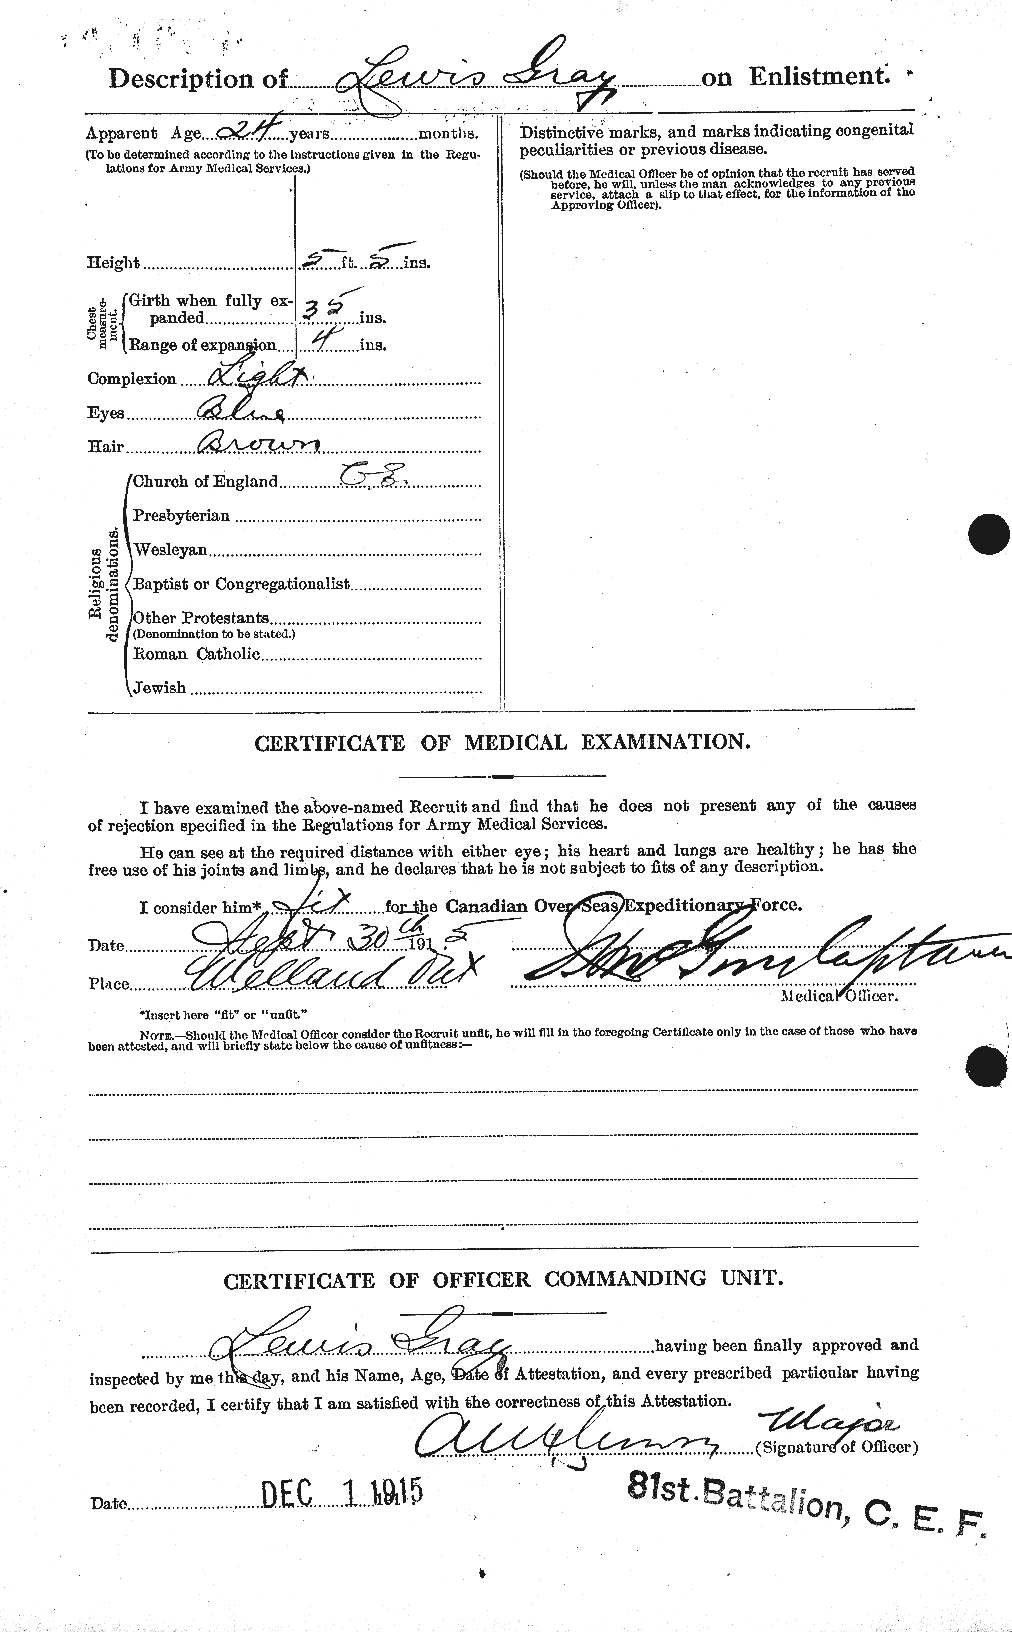 Description of Lewis Gray on Enlistment.
Apparent Age 24 years months.
(To be determined according to the instructions given in the Regulations for Army Medical Services.)
Height 5 ft. 5 ins.
Chest measurement.
Girth when fully expanded 35 ins.
Range of expansion 4 ins.
Complexion Light
Eyes Blue
Hair Brown
Religious denominations.
Church of England C.E.
Presbyterian
Wesleyan
Baptist or Congregationalist
Other Protestants
(Denomination to be stated.)
Roman Catholic
Jewish
Distinctive marks, and marks indicating congenital
peculiarities or previous disease.
(Should the Medical Officer be of opinion that the recruit has served
before, he will, unless the man acknowledges to any previous
service, attach a slip to that effect, for the information of the
Approving Officer).
CERTIFICATE OF MEDICAL EXAMINATION.
I have examined the above-named Recruit and find that he does not present any of the causes
of rejection specified in the Regulations for Army Medical Services.
He can see at the required distance with either eye; his heart and lungs are healthy; he has the
free use of his joints and limbs, and he declares that he is not subject to fits of any description.
I consider him* fit for the Canadian Over-Seas Expeditionary Force.
Date Sept 30th 1915
Place Welland Ont Captain
Medical Officer.
*Insert here "fit" or "unfit."
NOTE.—Should the Medical Officer consider the Recruit unfit, he will fill in the foregoing Certificate only in the case of those who have
been attested, and will briefly state below the cause of unfitness:—
CERTIFICATE OF OFFICER COMMANDING UNIT.
Lewis Gray having been finally approved and
inspected by me this day, and his Name, Age, Date of Attestation, and every prescribed particular having
been recorded, I certify that I am satisfied with the correctness of this Attestation.
Major
(Signature of Officer)
Date DEC 1 1915
81st. Battalion, C. E. F.